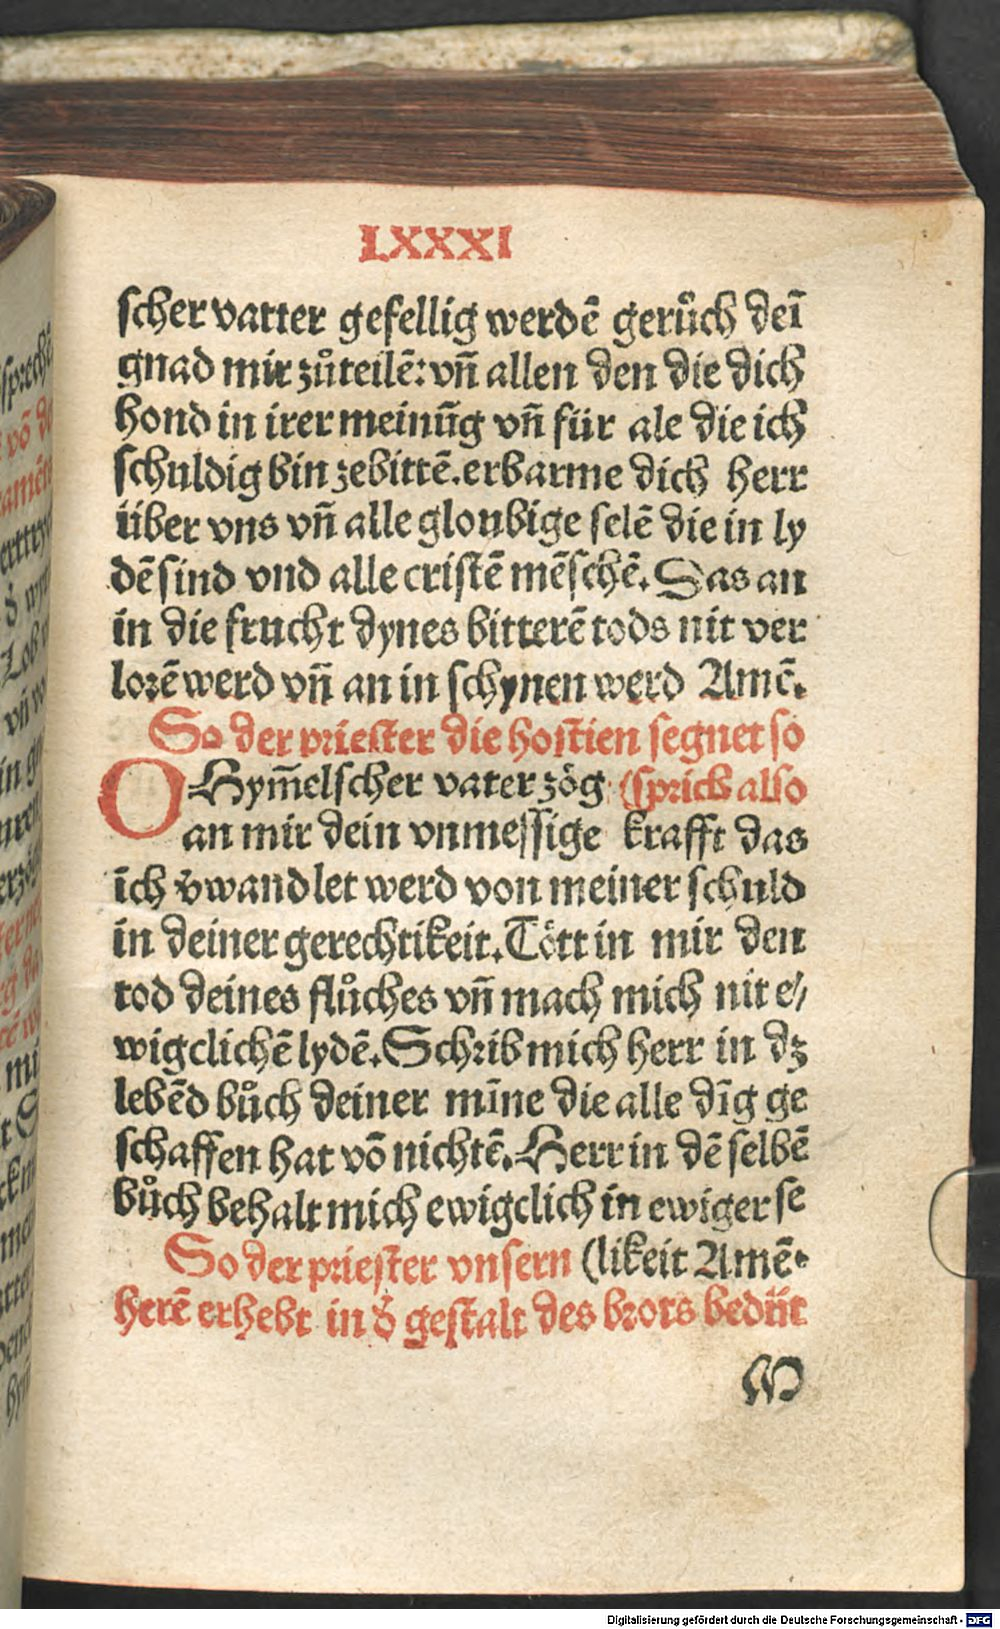 LXXXI
scher vatter gefellig werdē gerůch deī
gnad mir zůteilē: vn̄ allen den die dich
hond in irer meinūg vn̄ für ale die ich
schuldig bin zebittē. erbarme dich herr
über vns vn̄ alle gloubige selē die in ly
dē sind vnd alle cristē mēschē. Das an
in die frucht dynes bitterē tods nit ver
lorē werd vn̄ an in schynen werd Amē.
So der priester die hostien segnet so
O Hym̄elscher vater zög (sprich also
an mir dein vnmessige krafft das
ich v̄wandlet werd von meiner schuld
in deiner gerechtikeit. Tött in mir den
tod deines flůches vn̄ mach mich nit e/
wigclichē lydē. Schrib mich herr in dz
lebēd bůch deiner mīne die alle dīg ge
schaffen hat vō nichtē. Herr in dē selbē
bůch behalt mich ewigclich in ewiger se
So der priester vnsern (likeit Amē.
herē erhebt in d̄ gestalt des brots bedüt
M
Digitalisierung gefördert durch die Deutsche Forschungsgemeinschaft - DFG